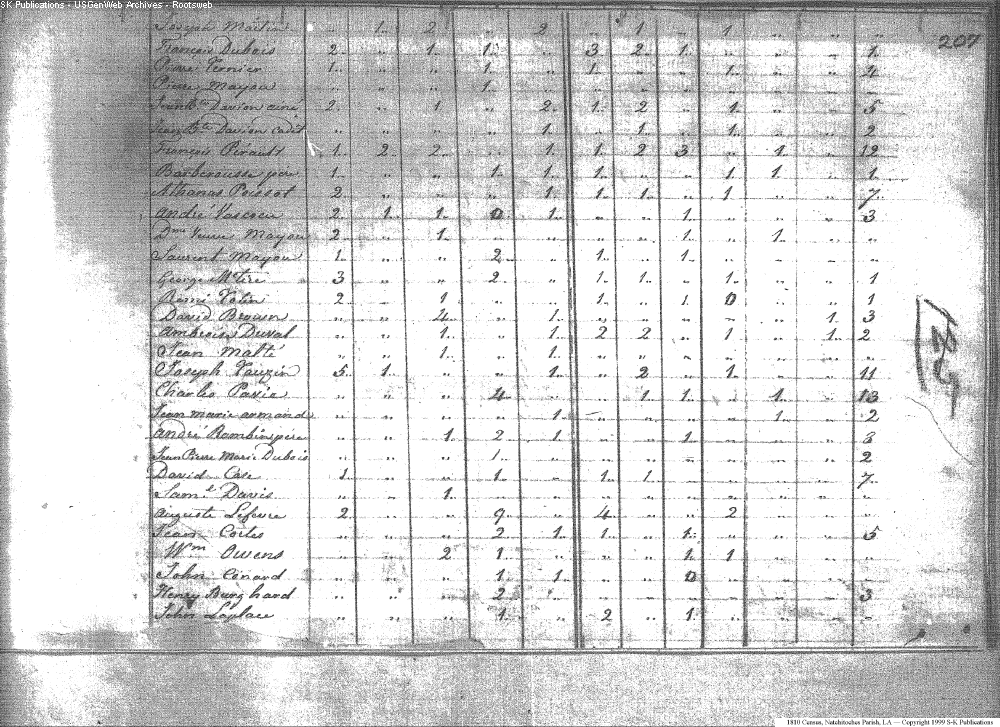 SK Publications - USGenWeb Archives - Rootsweb
207
Joseph Martin .. 1. 2 .. 2 .. 1 .. 1 .. .. ..
Francois Dubois 2.. .. 1. 1. .. 3 2. 1. .. .. .. 1.
Pierre Vernier 1.. .. .. 1. .. 1. .. .. 1. .. .. 4
Pierre Mayou .. .. .. 1. .. .. .. .. .. .. .. ..
Jean Bte Davion ainé 2 .. 1 .. 2. 1. 2 .. 1. .. .. 5
Jean Bte Davion cadet .. .. .. .. 1. .. 1. .. 1. .. .. 2
François Pérault 1. 2. 2. .. 1. 1. 2 3 .. 1. .. 12
Barberousse pere 1. .. .. 1. 1. 1. .. .. 1 1. .. 1.
Athanas Poissot 2. .. .. .. 1. 1. 1. .. 1 .. .. 7
André Vascocu 2. 1. 1. 0 1. .. .. 1. .. .. .. 3
Dme Veuve Mayou 2 .. 1. .. .. .. .. 1. .. 1. .. ..
Laurent Mayou 1. .. .. 2. .. 1. .. 1. .. .. .. ..
George McTire 3 .. .. 2 .. 1. 1. .. 1. .. .. 1
Remi Totin 2 .. 1 .. .. 1. .. 1. 0 .. .. 1
David Brown .. .. 4. .. 1. .. .. .. .. .. 1. 3
Ambrois Duval .. .. 1. .. 1. 2 2 .. 1 .. 1. 2
Jean Malté .. .. 1. .. 1. .. .. .. .. .. .. ..
Joseph Tauzin 5. 1. .. .. 1. .. 2 .. 1. .. .. 11
Charles Pavie .. .. .. 4. .. .. 1. 1. .. 1. .. 13
Jean marie armand .. .. .. .. 1. .. .. .. .. 1. .. 2
André Rambin pere .. .. 1. 2 1. .. .. 1. .. .. .. 3
Jean Pierre Marie Dubois .. .. .. 1. .. .. .. .. .. .. .. 2
David Case 1. .. .. 1. .. 1. 1. .. .. .. .. 7
Saml Davis .. .. 1. .. .. .. .. .. .. .. .. ..
Auguste Lefevre 2 .. .. 9. .. 4. .. .. 2 .. .. ..
Jean Cortes .. .. .. 2 1. 1. .. 1. .. .. .. 5
Wm Owens .. .. 2 1. .. .. .. 1. 1 .. .. ..
John Conard .. .. .. 1. 1. .. .. 0 .. .. .. ..
Henry Burghard .. .. .. 2 .. .. .. .. .. .. .. 3
John Laplace .. .. .. 1. .. 2 .. 1. .. .. .. ..
125
1810 Census, Natchitoches Parish, LA — Copyright 1999 S-K Publications